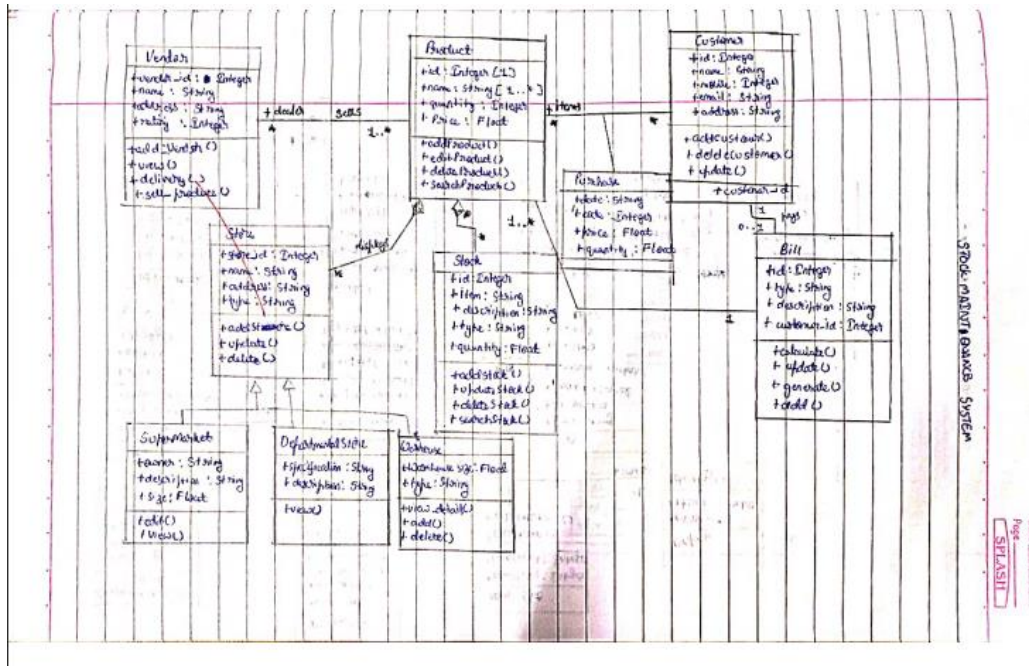 Vendor
+vendor_id : Integer
+name : String
+address : String
+rating : Integer
+add_Vendor()
+view()
+delivery()
+sell_product()
+dealer
sells
*
1..*
Product
+id : Integer [1]
+name : String [1..*]
+quantity : Integer
+Price : Float
+addProduct()
+editProduct()
+deleteProduct()
+searchProduct()
+items
*
*
Customer
+id : Integer
+name : String
+mobile : Integer
+email : String
+address : String
+addCustomer()
+deleteCustomer()
+update()
+customer_id
1
pays
0..1
Purchase
+date : String
+code : Integer
+price : Float
+quantity : Float
Bill
+id : Integer
+type : String
+description : String
+customer_id : Integer
+calculate()
+update()
+generate()
+add()
1..*
1
Store
+store_id : Integer
+name : String
+address : String
+type : String
+addStore()
+update()
+delete()
displays
*
*
Stock
+id : Integer
+Item : String
+description : String
+type : String
+quantity : Float
+addStock()
+updateStock()
+deleteStock()
+searchStock()
SuperMarket
+owner : String
+description : String
+size : Float
+edit()
+view()
DepartmentalStore
+specification : String
+description : String
+view()
Warehouse
+Warehouse size : Float
+type : String
+view_detail()
+add()
+delete()
STOCK MAINTENANCE SYSTEM
Page
SPLASH